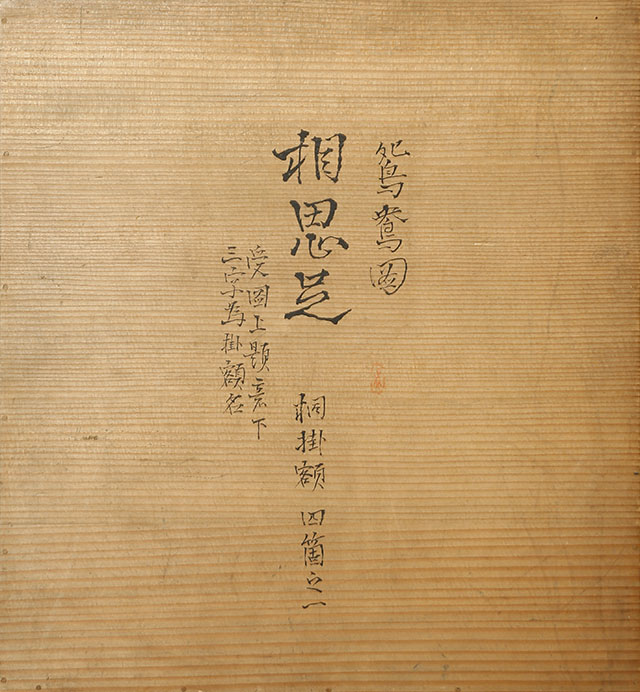 鴛鴦図
相思足
桐掛額 四箇之一
図上題意下
三字為掛額名